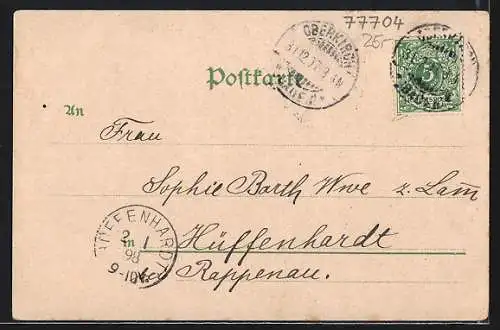 77704
25.-
OBERKIRCH
31.12.97
Postkarte
5
An
Frau
Sophie Barth Wwe z. Lam̅
Hüffenhardt
Rappenau.
HÜFFENHARDT
2
1
98
9-10V